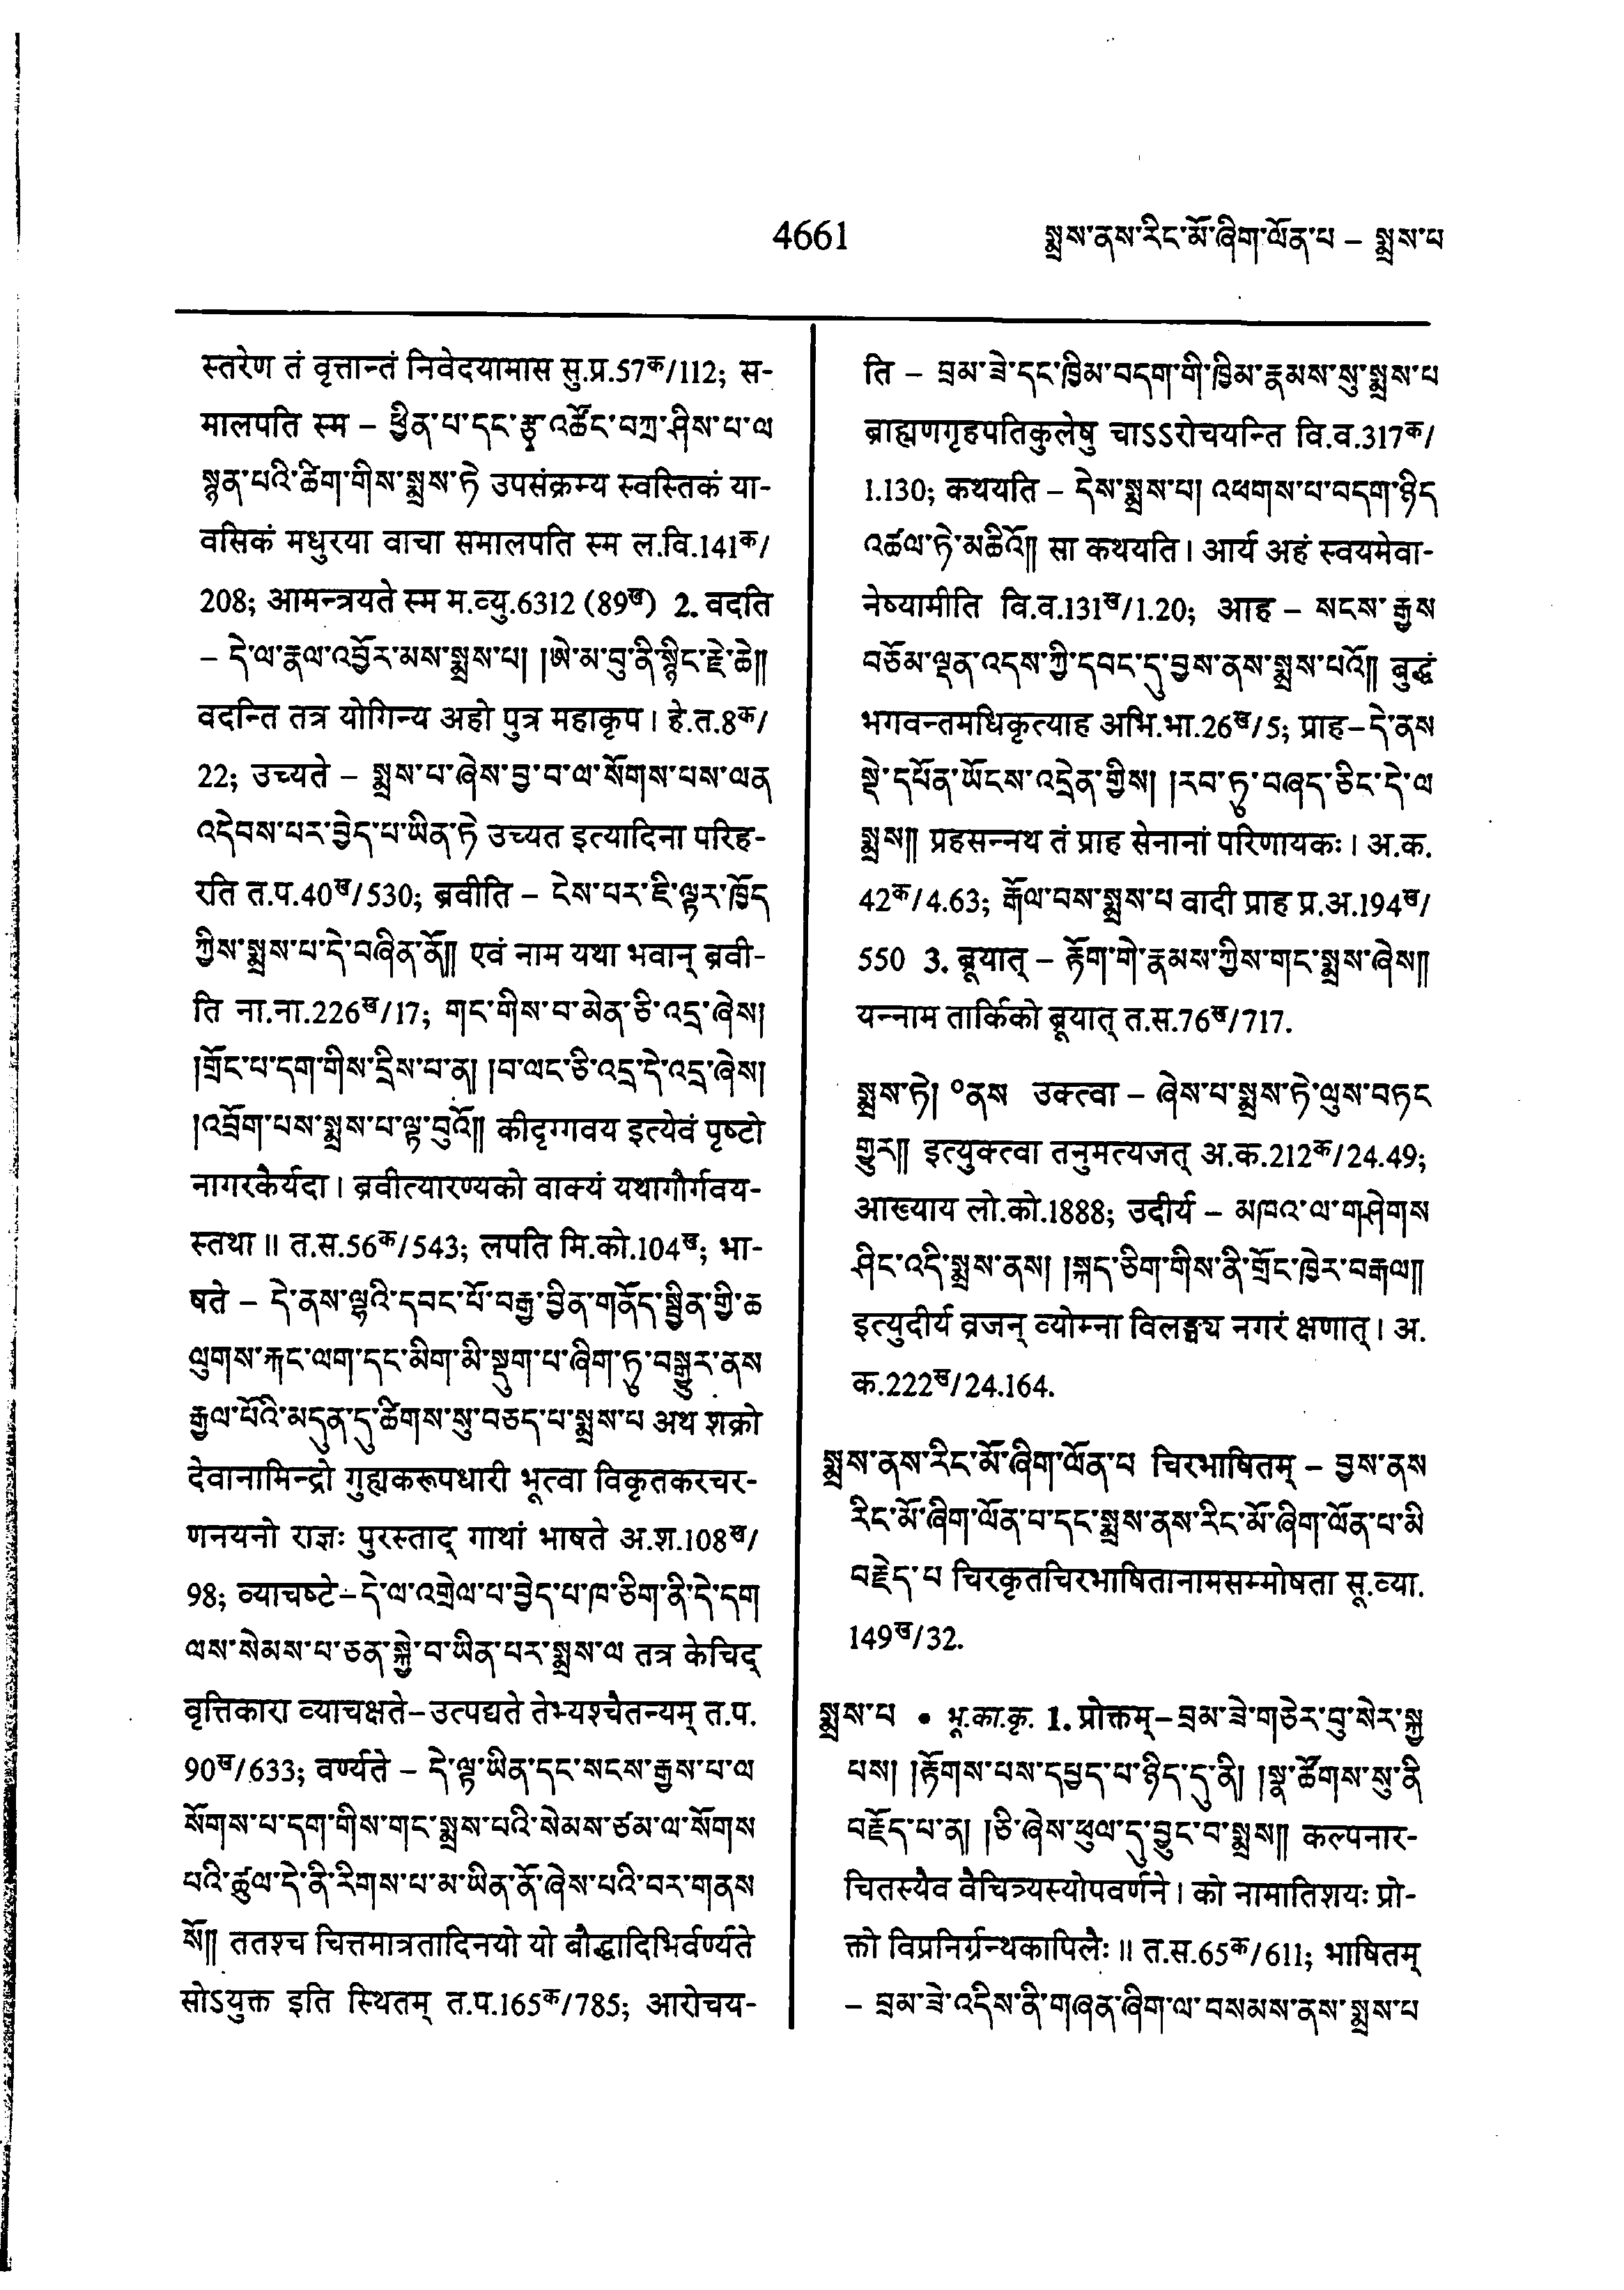 4661
སྨྲས་ནས་རིང་མོ་ཞིག་ལོན་པ – སྨྲས་པ
स्तरेण तं वृत्तान्तं निवेदयामास सु.प्र.57क/112; स-
मालपति स्म – ཕྱིན་པ་དང་རྩྭ་འཚོང་བཀྲ་ཤིས་པ་ལ
སྙན་པའི་ཚིག་གིས་སྨྲས་ཏེ उपसंक्रम्य स्वस्तिकं या-
वसिकं मधुरया वाचा समालपति स्म ल.वि.141क/
208; आमन्त्रयते स्म म.व्यु.6312 (89ख) 2. वदति
– དེ་ལ་རྣལ་འབྱོར་མས་སྨྲས་པ། །ཨེ་མ་བུ་ནི་སྙིང་རྗེ་ཆེ༎
वदन्ति तत्र योगिन्य अहो पुत्र महाकृप। हे.त.8क/
22; उच्यते – སྨྲས་པ་ཞེས་བྱ་བ་ལ་སོགས་པས་ལན
འདེབས་པར་བྱེད་པ་ཡིན་ཏེ उच्यत इत्यादिना परिह-
रति त.प.40ख/530; ब्रवीति – ངེས་པར་ཇི་ལྟར་ཁྱོད
ཀྱིས་སྨྲས་པ་དེ་བཞིན་ནོ༎ एवं नाम यथा भवान् ब्रवी-
ति ना.ना.226ख/17; གང་གིས་བ་མེན་ཅི་འདྲ་ཞེས།
།གྲོང་པ་དག་གིས་དྲིས་པ་ན། །བ་ལང་ཅི་འདྲ་དེ་འདྲ་ཞེས།
།འབྲོག་པས་སྨྲས་པ་ལྟ་བུའོ༎ कीदृग्गवय इत्येवं पृष्टो
नागरकैर्यदा। ब्रवीत्यारण्यको वाक्यं यथागौर्गवय-
स्तथा॥ त.स.56क/543; लपति मि.को.104ख; भा-
षते – དེ་ནས་ལྷའི་དབང་པོ་བརྒྱ་བྱིན་གནོད་སྦྱིན་གྱི་ཆ
ལུགས་རྐང་ལག་དང་མིག་མི་སྡུག་པ་ཞིག་ཏུ་བསྒྱུར་ནས
རྒྱལ་པོའི་མདུན་དུ་ཚིགས་སུ་བཅད་པ་སྨྲས་པ अथ शक्रो
देवानामिन्द्रो गुह्यकरूपधारी भूत्वा विकृतकरचर-
णनयनो राज्ञः पुरस्ताद् गाथां भाषते अ.श.108ख/
98; व्याचष्टे–དེ་ལ་འགྲེལ་པ་བྱེད་པ་ཁ་ཅིག་ནི་དེ་དག
ལས་སེམས་པ་ཅན་སྐྱེ་བ་ཡིན་པར་སྨྲས་ལ तत्र केचिद्
वृत्तिकारा व्याचक्षते–उत्पद्यते तेभ्यश्चैतन्यम् त.प.
90ख/633; वर्ण्यते – དེ་ལྟ་ཡིན་དང་སངས་རྒྱས་པ་ལ
སོགས་པ་དག་གིས་གང་སྨྲས་པའི་སེམས་ཙམ་ལ་སོགས
པའི་ཚུལ་དེ་ནི་རིགས་པ་མ་ཡིན་ནོ་ཞེས་པའི་བར་གནས
སོ༎ ततश्च चित्तमात्रतादिनयो यो बौद्धादिभिर्वर्ण्यते
सोऽयुक्त इति स्थितम् त.प.165क/785; आरोचय-
ति – བྲམ་ཟེ་དང་ཁྱིམ་བདག་གི་ཁྱིམ་རྣམས་སུ་སྨྲས་པ
ब्राह्मणगृहपतिकुलेषु चाऽऽरोचयन्ति वि.व.317क/
1.130; कथयति – དེས་སྨྲས་པ། འཕགས་པ་བདག་ཉིད
འཚལ་ཏེ་མཆིའོ༎ सा कथयति। आर्य अहं स्वयमेवा-
नेष्यामीति वि.व.131ख/1.20; आह – སངས་རྒྱས
བཅོམ་ལྡན་འདས་ཀྱི་དབང་དུ་བྱས་ནས་སྨྲས་པའོ༎ बुद्धं
भगवन्तमधिकृत्याह अभि.भा.26ख/5; प्राह–དེ་ནས
སྡེ་དཔོན་ཡོངས་འདྲེན་གྱིས། །རབ་ཏུ་བཞད་ཅིང་དེ་ལ
སྨྲས༎ प्रहसन्नथ तं प्राह सेनानां परिणायकः। अ.क.
42क/4.63; རྒོལ་བས་སྨྲས་པ वादी प्राह प्र.अ.194ख/
550 3. ब्रूयात् – རྟོག་གེ་རྣམས་ཀྱིས་གང་སྨྲས་ཞེས༎
यन्नाम तार्किको ब्रूयात् त.स.76ख/717.
སྨྲས་ཏེ། ०ནས उक्त्वा – ཞེས་པ་སྨྲས་ཏེ་ལུས་བཏང
གྱུར༎ इत्युक्त्वा तनुमत्यजत् अ.क.212क/24.49;
आख्याय लो.को.1888; उदीर्य – མཁའ་ལ་གཤེགས
ཤིང་འདི་སྨྲས་ནས། །སྐད་ཅིག་གིས་ནི་གྲོང་ཁྱེར་བརྒལ༎
इत्युदीर्य व्रजन् व्योम्ना विलङ्घ्य नगरं क्षणात्। अ.
क.222ख/24.164.
སྨྲས་ནས་རིང་མོ་ཞིག་ལོན་པ चिरभाषितम् – བྱས་ནས
རིང་མོ་ཞིག་ལོན་པ་དང་སྨྲས་ནས་རིང་མོ་ཞིག་ལོན་པ་མི
བརྗེད་པ चिरकृतचिरभाषितानामसम्मोषता सू.व्या.
149ख/32.
སྨྲས་པ • भू.का.कृ. 1. प्रोक्तम्–བྲམ་ཟེ་གཅེར་བུ་སེར་སྐྱ
པས། །རྟོགས་པས་དཔྱད་པ་ཉིད་དུ་ནི། །སྣ་ཚོགས་སུ་ནི
བརྗོད་པ་ན། །ཅི་ཞེས་ཕུལ་དུ་བྱུང་བ་སྨྲས༎ कल्पनार-
चितस्यैव वैचित्र्यस्योपवर्णने। को नामातिशयः प्रो-
क्तो विप्रनिर्ग्रन्थकापिलैः॥ त.स.65क/611; भाषितम्
– བྲམ་ཟེ་འདིས་ནི་གཞན་ཞིག་ལ་བསམས་ནས་སྨྲས་པ